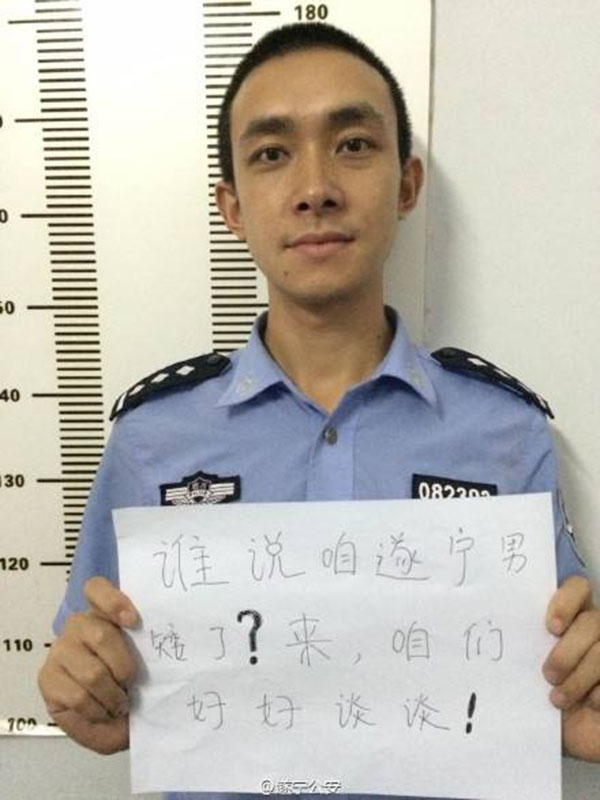 180
50
40
130
120
110
100
082393
谁说咱遂宁男
矮了?来,咱们
好好谈谈!
@遂宁公安